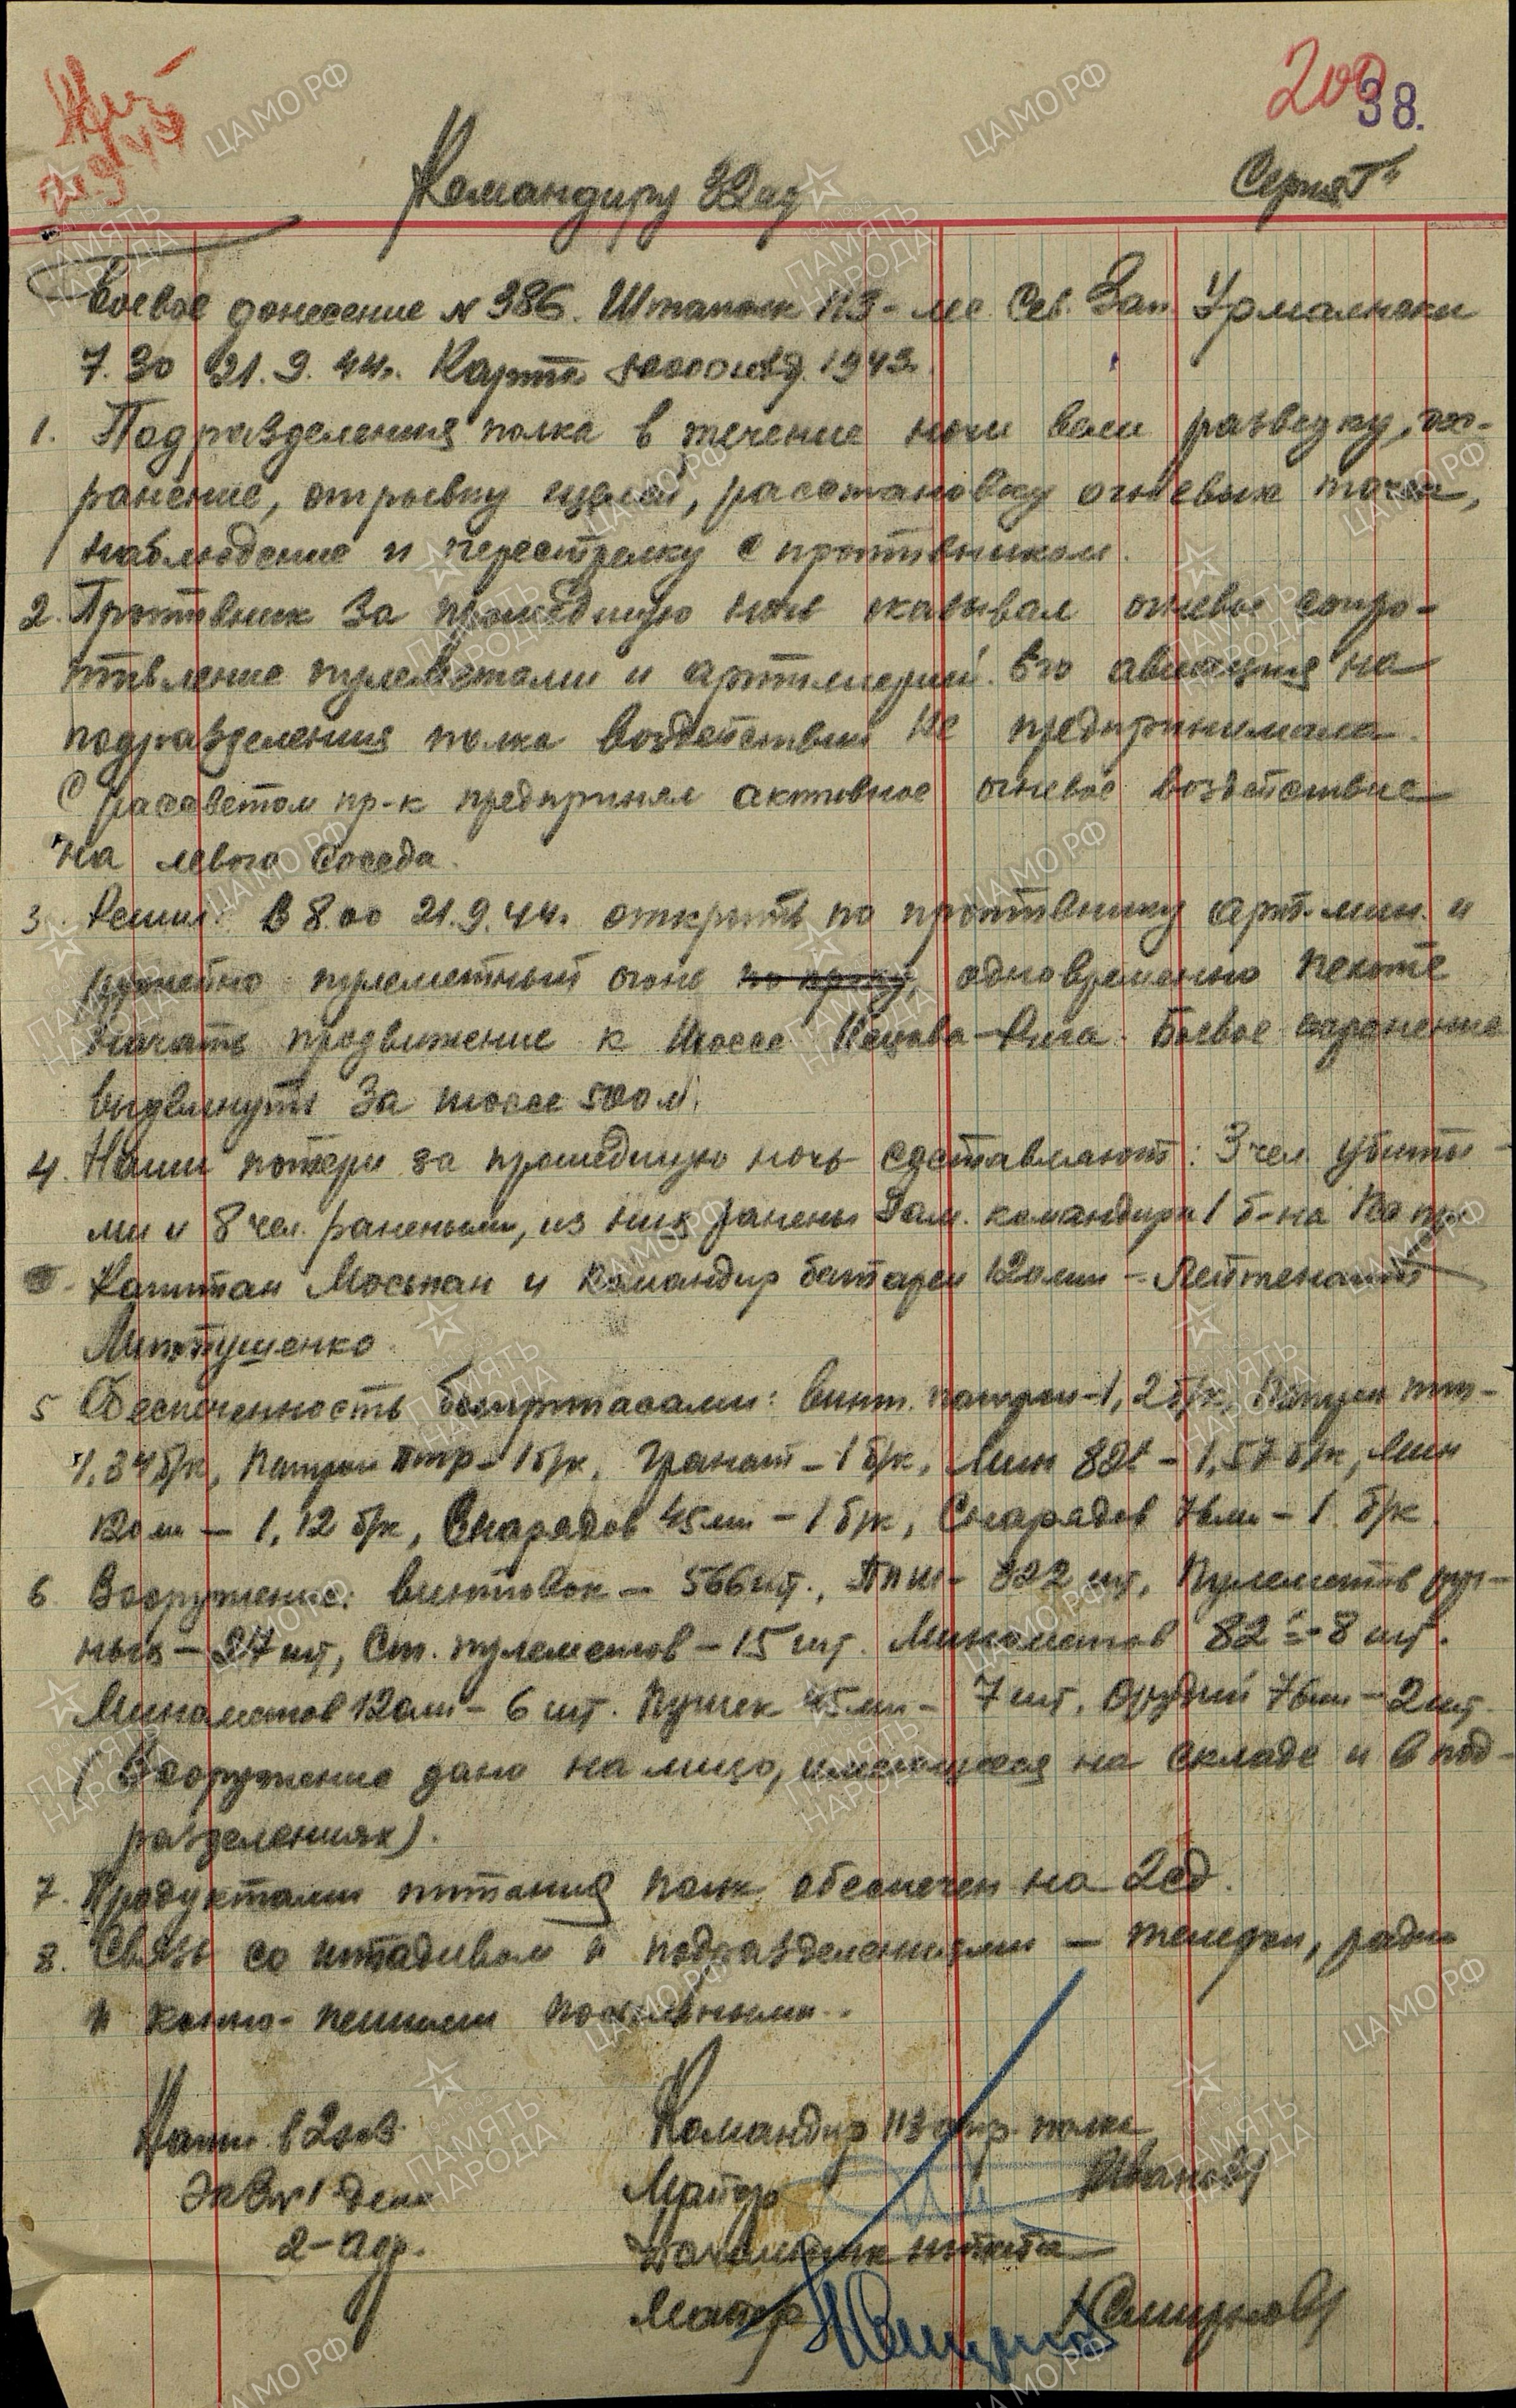 200
38.
21.9.44
Командиру 32 сд
Серия "Г"
Боевое донесение № 386. Штаполк 113 - лес Сев. Зап. Урмалнеки
7.30 21.9.44г. Карта 50000 изд. 1943г.
1. Подразделения полка в течение ночи вели разведку, ох-
ранение, отрывку щелей, расстановку огневых точек,
наблюдение и перестрелку с противником.
2. Противник за прошедшую ночь оказывал огневое сопро-
тивление пулеметами и артиллерией. Его авиация на
подразделения полка воздействий не предпринимала.
С рассветом пр-к предпринял активное огневое воздействие
на левого соседа.
3. Решил: В 8.00 21.9.44г. открыть по противнику арт. мин. и
ружейно-пулеметный огонь по пр-ку, одновременно пехоте
начать продвижение к шоссе Кецава-Рига. Боевое охранение
выдвинуть за шоссе 500 м.
4. Наши потери за прошедшую ночь составляют: 3 чел. убиты-
ми и 8 чел. ранеными, из них ранены Зам. командира 1 б-на
Капитан Моськан и Командир батареи 120мм - Лейтенант
Литтушенко
5 Обеспеченность боеприпасами: винт. патрон-1,2 б/к, Патрон ппш-
1,34 б/к, Патрон птр-1 б/к, Гранат-1 б/к, Мин 82 - 1,57 б/к, Мин
120мм - 1,12 б/к, Снарядов 45мм - 1 б/к, Снарядов 76мм - 1 б/к.
6. Вооружение: винтовок - 566 шт., ППШ - 322 шт, Пулеметов руч-
ных - 27 шт, Ст. пулеметов - 15 шт. Минометов 82 - 8 шт.
Минометов 120мм - 6 шт. Пушек 45мм - 7 шт. Орудий 76мм - 2 шт.
(Вооружение дано на лицо, имеющееся на складе и в под-
разделениях).
7. Продуктами питания полк обеспечен на 2 сд.
8. Связь со штадивом и подразделениями - телефон, радио
и конно-пешими посыльными.
Напеч. в 2 экз.
Экз № 1 дело
2 - адр.
Командир 113 стр. полка
Майор /Иванов/
Начальник штаба
Майор /Смирнов/